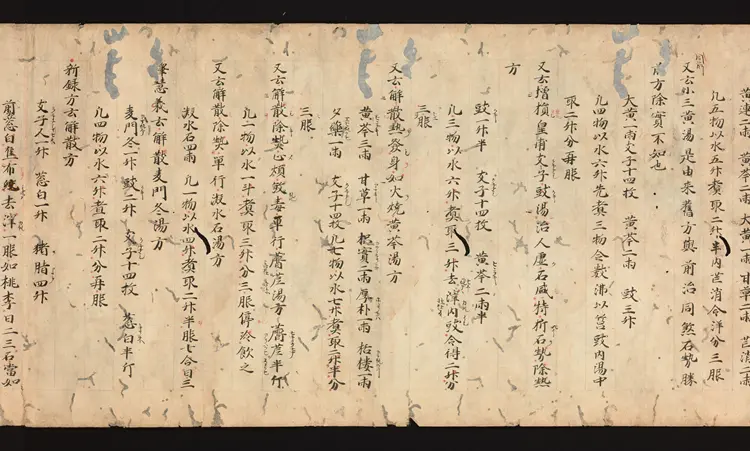 黄連一兩 黄芩一兩 大黄一兩 甘草二兩 芒消二兩
凡五物以水五升煮取二升半内芒消令洋分三服
又云小三黄湯是由来舊方與前治同然石勢勝
前方除實不如也
大黄一兩 支子十四枚 黄芩一兩 豉三升
凡四物以水六升先煮三物令數沸以筥豉内湯中
取二升分再服
又云增損皇甫支子豉湯治人虚石盛特折石勢除熱
方
豉一升半 支子十四枚 黄芩二兩半
凡三物以水六升煮取三升去滓内豉令得二升分
三服
又云解散熱發身如火燒黄芩湯方
黄芩三兩 甘草一兩 枳實二兩 厚朴一兩 栝樓一兩
夕藥一兩 支子十四枚 凡七物以水七升煮取二升半分
三服
又云解散除熱心煩豉毒單行薺苨湯方 薺苨半斤
凡一物以水一斗煮取三升分三服停終飲之
又云解散除熱單行凝水石湯方
凝水石四兩 凡一物以水四升煮取二升半服七合日三
釋慧義云解散麦門冬湯方
麦門冬一升 豉二升 支子十四枚 葱白半斤
凡四物以水六升煮取二升分再服
新録方云解散方
支子人一升 葱白一升 猪脂四升
煎葱白焦布絞去滓一服如桃李日二三石當如